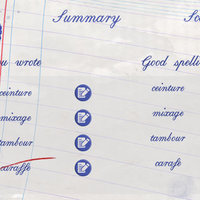 Summary
wrote Good spelli
ceinture ceinture
mixage mixage
tambour tambour
caraffe carafe